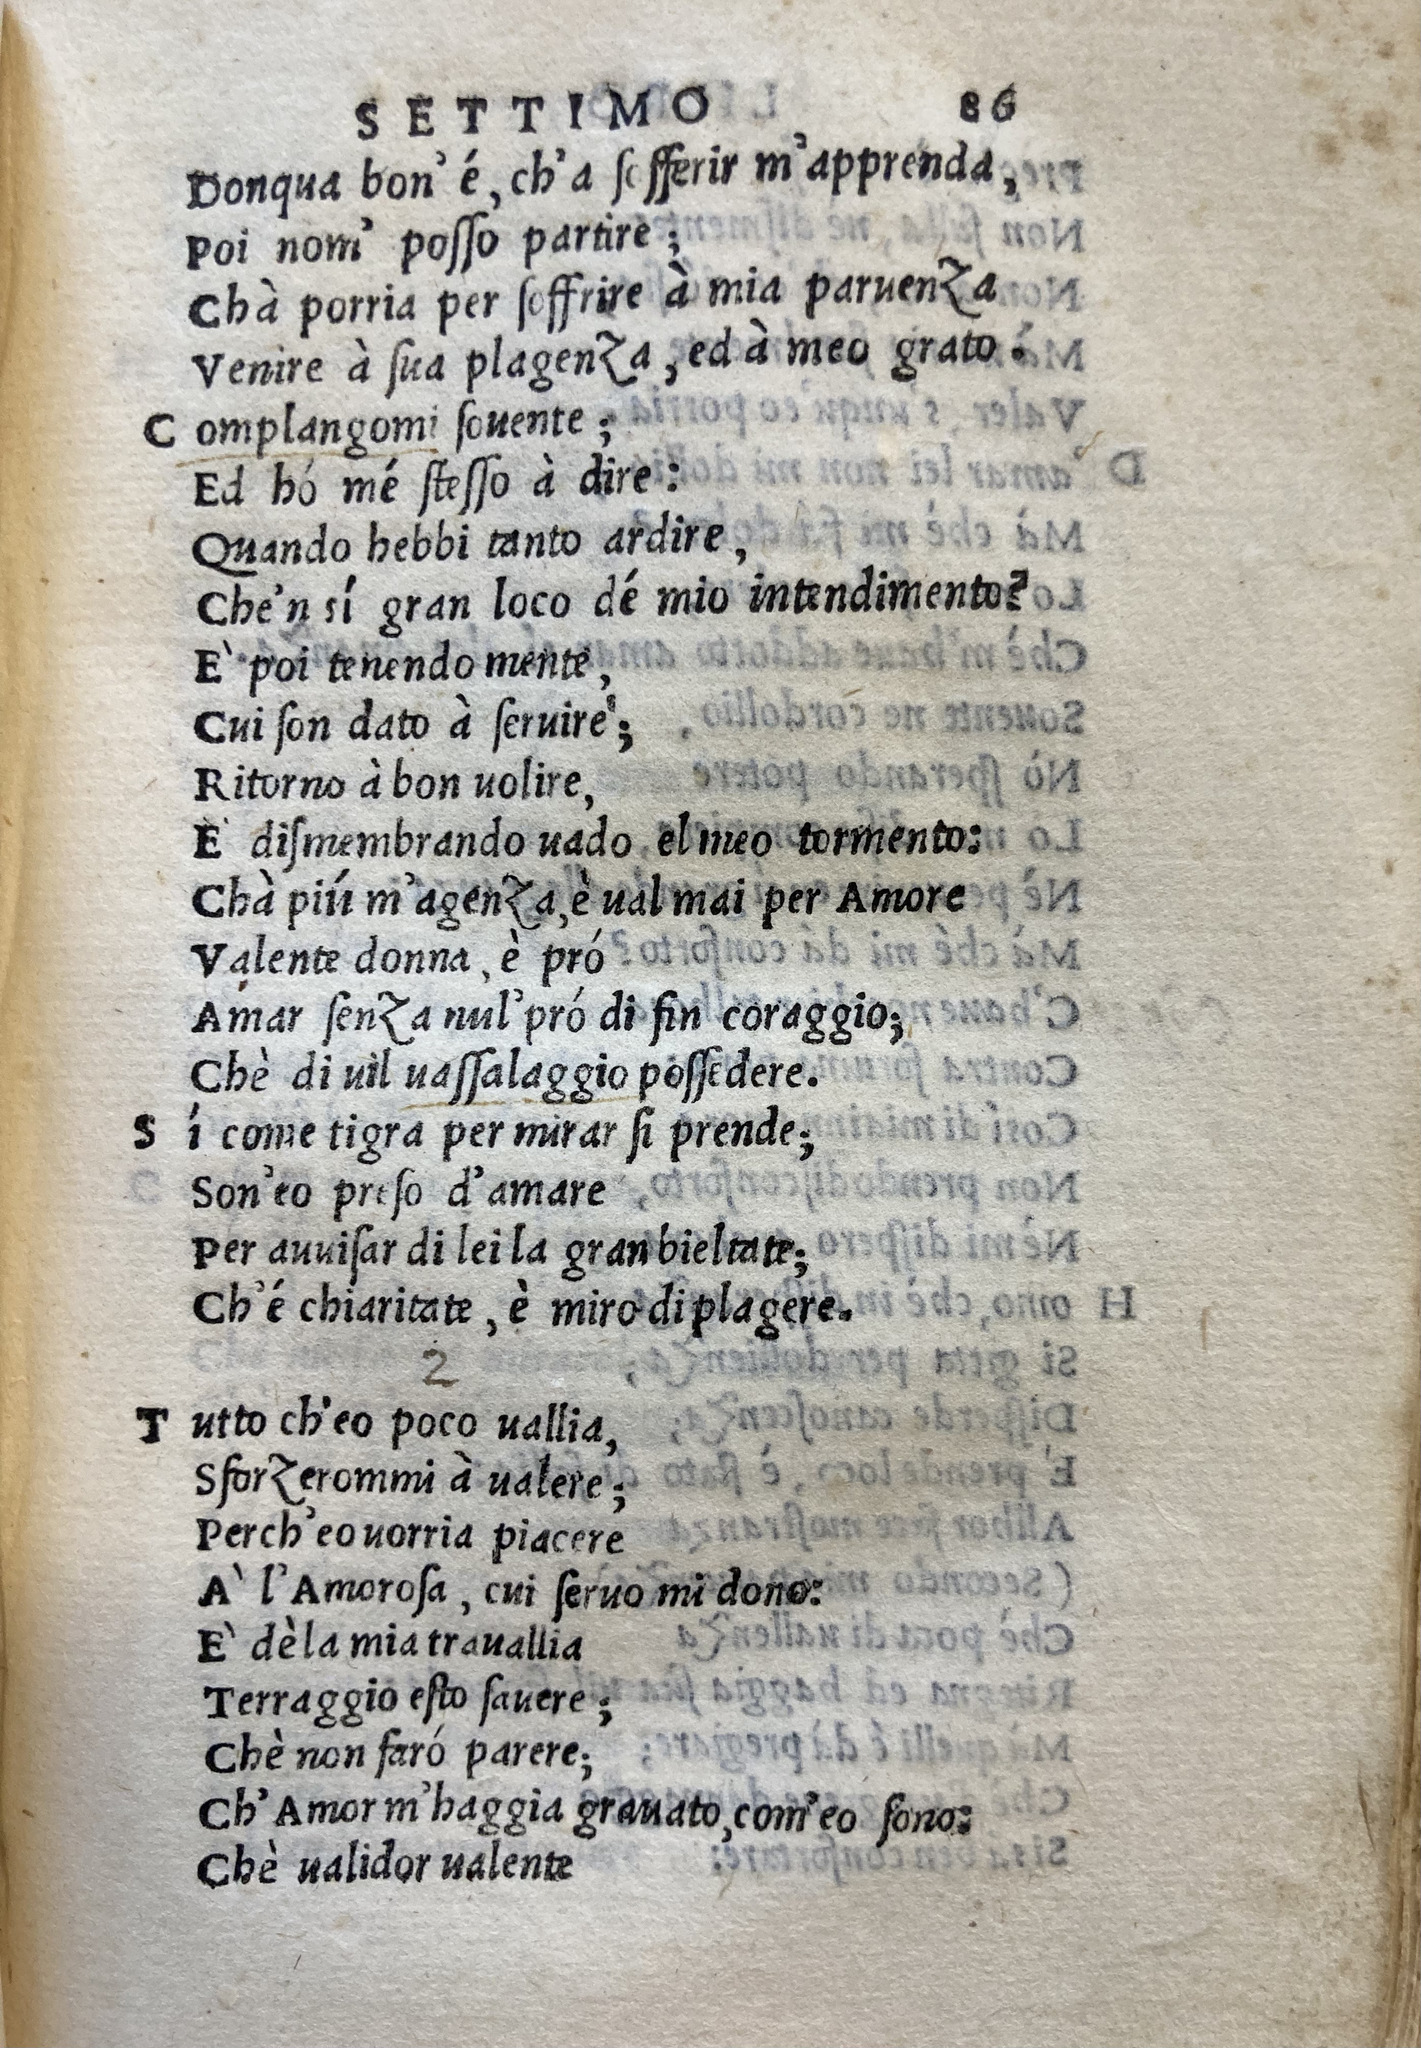 SETTIMO 86
Donqua bon' é, ch'a sofferir m'apprenda,
Poi nom' posso partire;
Chà porria per soffrire à mia paruenza
Venire à sua plagenza, ed à meo grato.
Complangomi souente;
Ed hó mé stesso à dire:
Quando hebbi tanto ardire,
Che'n sí gran loco dé mio intendimento?
E' poi tenendo mente,
Cui son dato à seruire;
Ritorno à bon uolire,
E' dismembrando uado el meo tormento:
Chà piú m'agenza, è ual mai per Amore
Valente donna, è pró
Amar senza nul' pró di fin coraggio;
Chè di uil uassalaggio possedere.
Sí come tigra per mirar si prende;
Son'eo preso d'amare
Per auuisar di lei la gran bieltate;
Ch'é chiaritate, è miro di plagere.
2
Tutto ch'eo poco uallia,
Sforzerommi à ualere;
Perch'eo uorria piacere
A' l'Amorosa, cui seruo mi dono:
E' dè la mia trauallia
Terraggio esto sauere;
Chè non faró parere;
Ch' Amor m'haggia grauato, com'eo sono:
Chè ualidor ualente